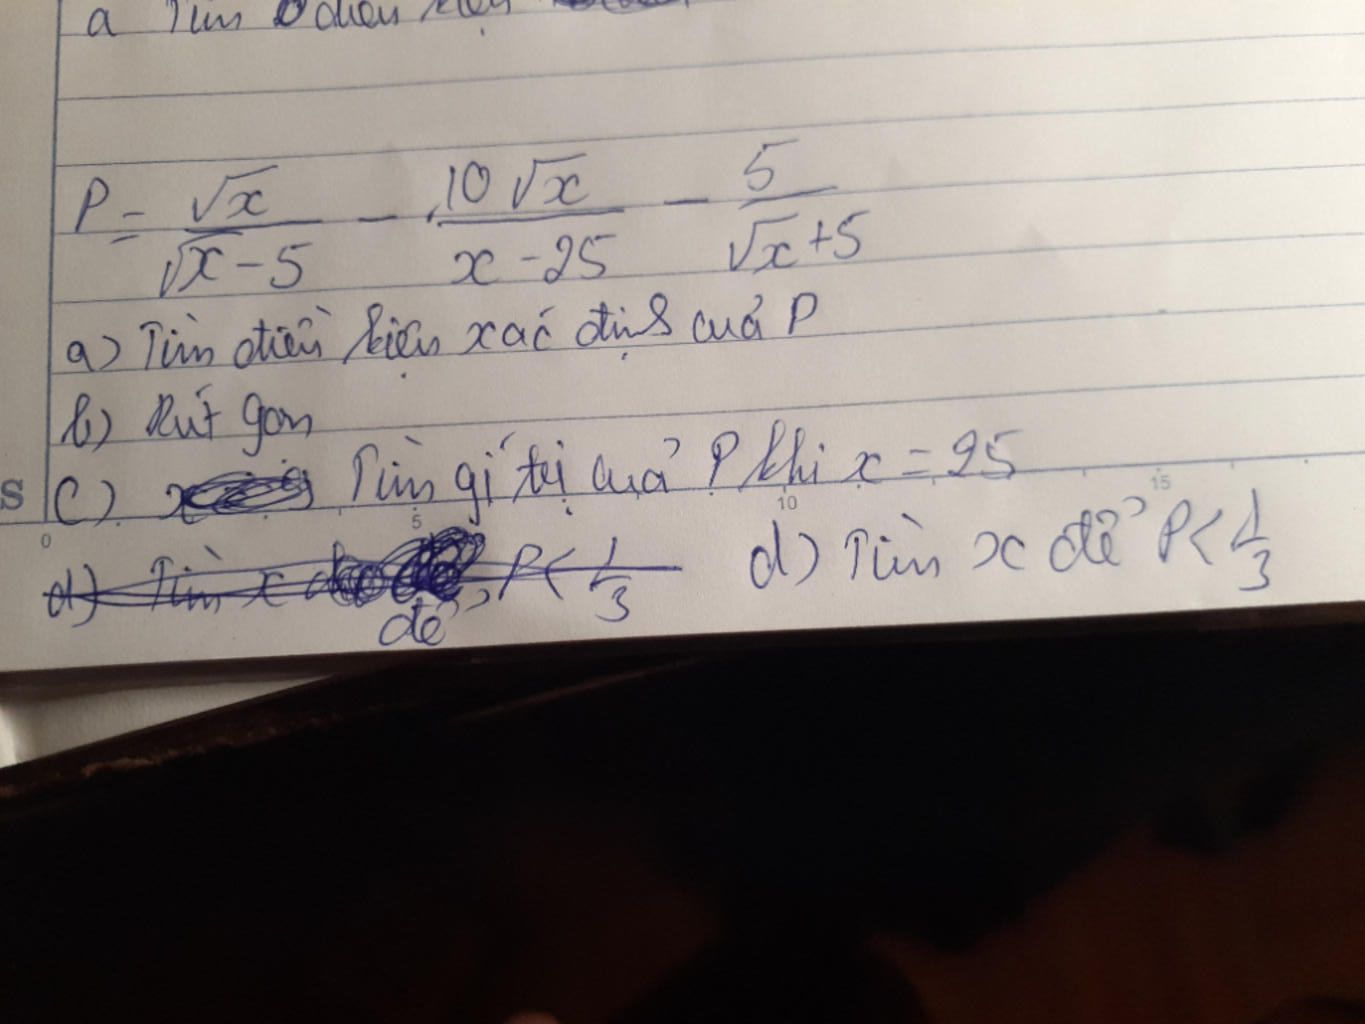 a Tìm điều kiện
P = √x / (√x - 5) - 10√x / (x - 25) - 5 / (√x + 5)
a) Tìm điều kiện xác định của P
b) Rút gọn
c) Tìm gí tị của P khi x = 25
d) Tìm x để P < 1/3
d) Tìm x để P < 1/3
S
0 5 10 15